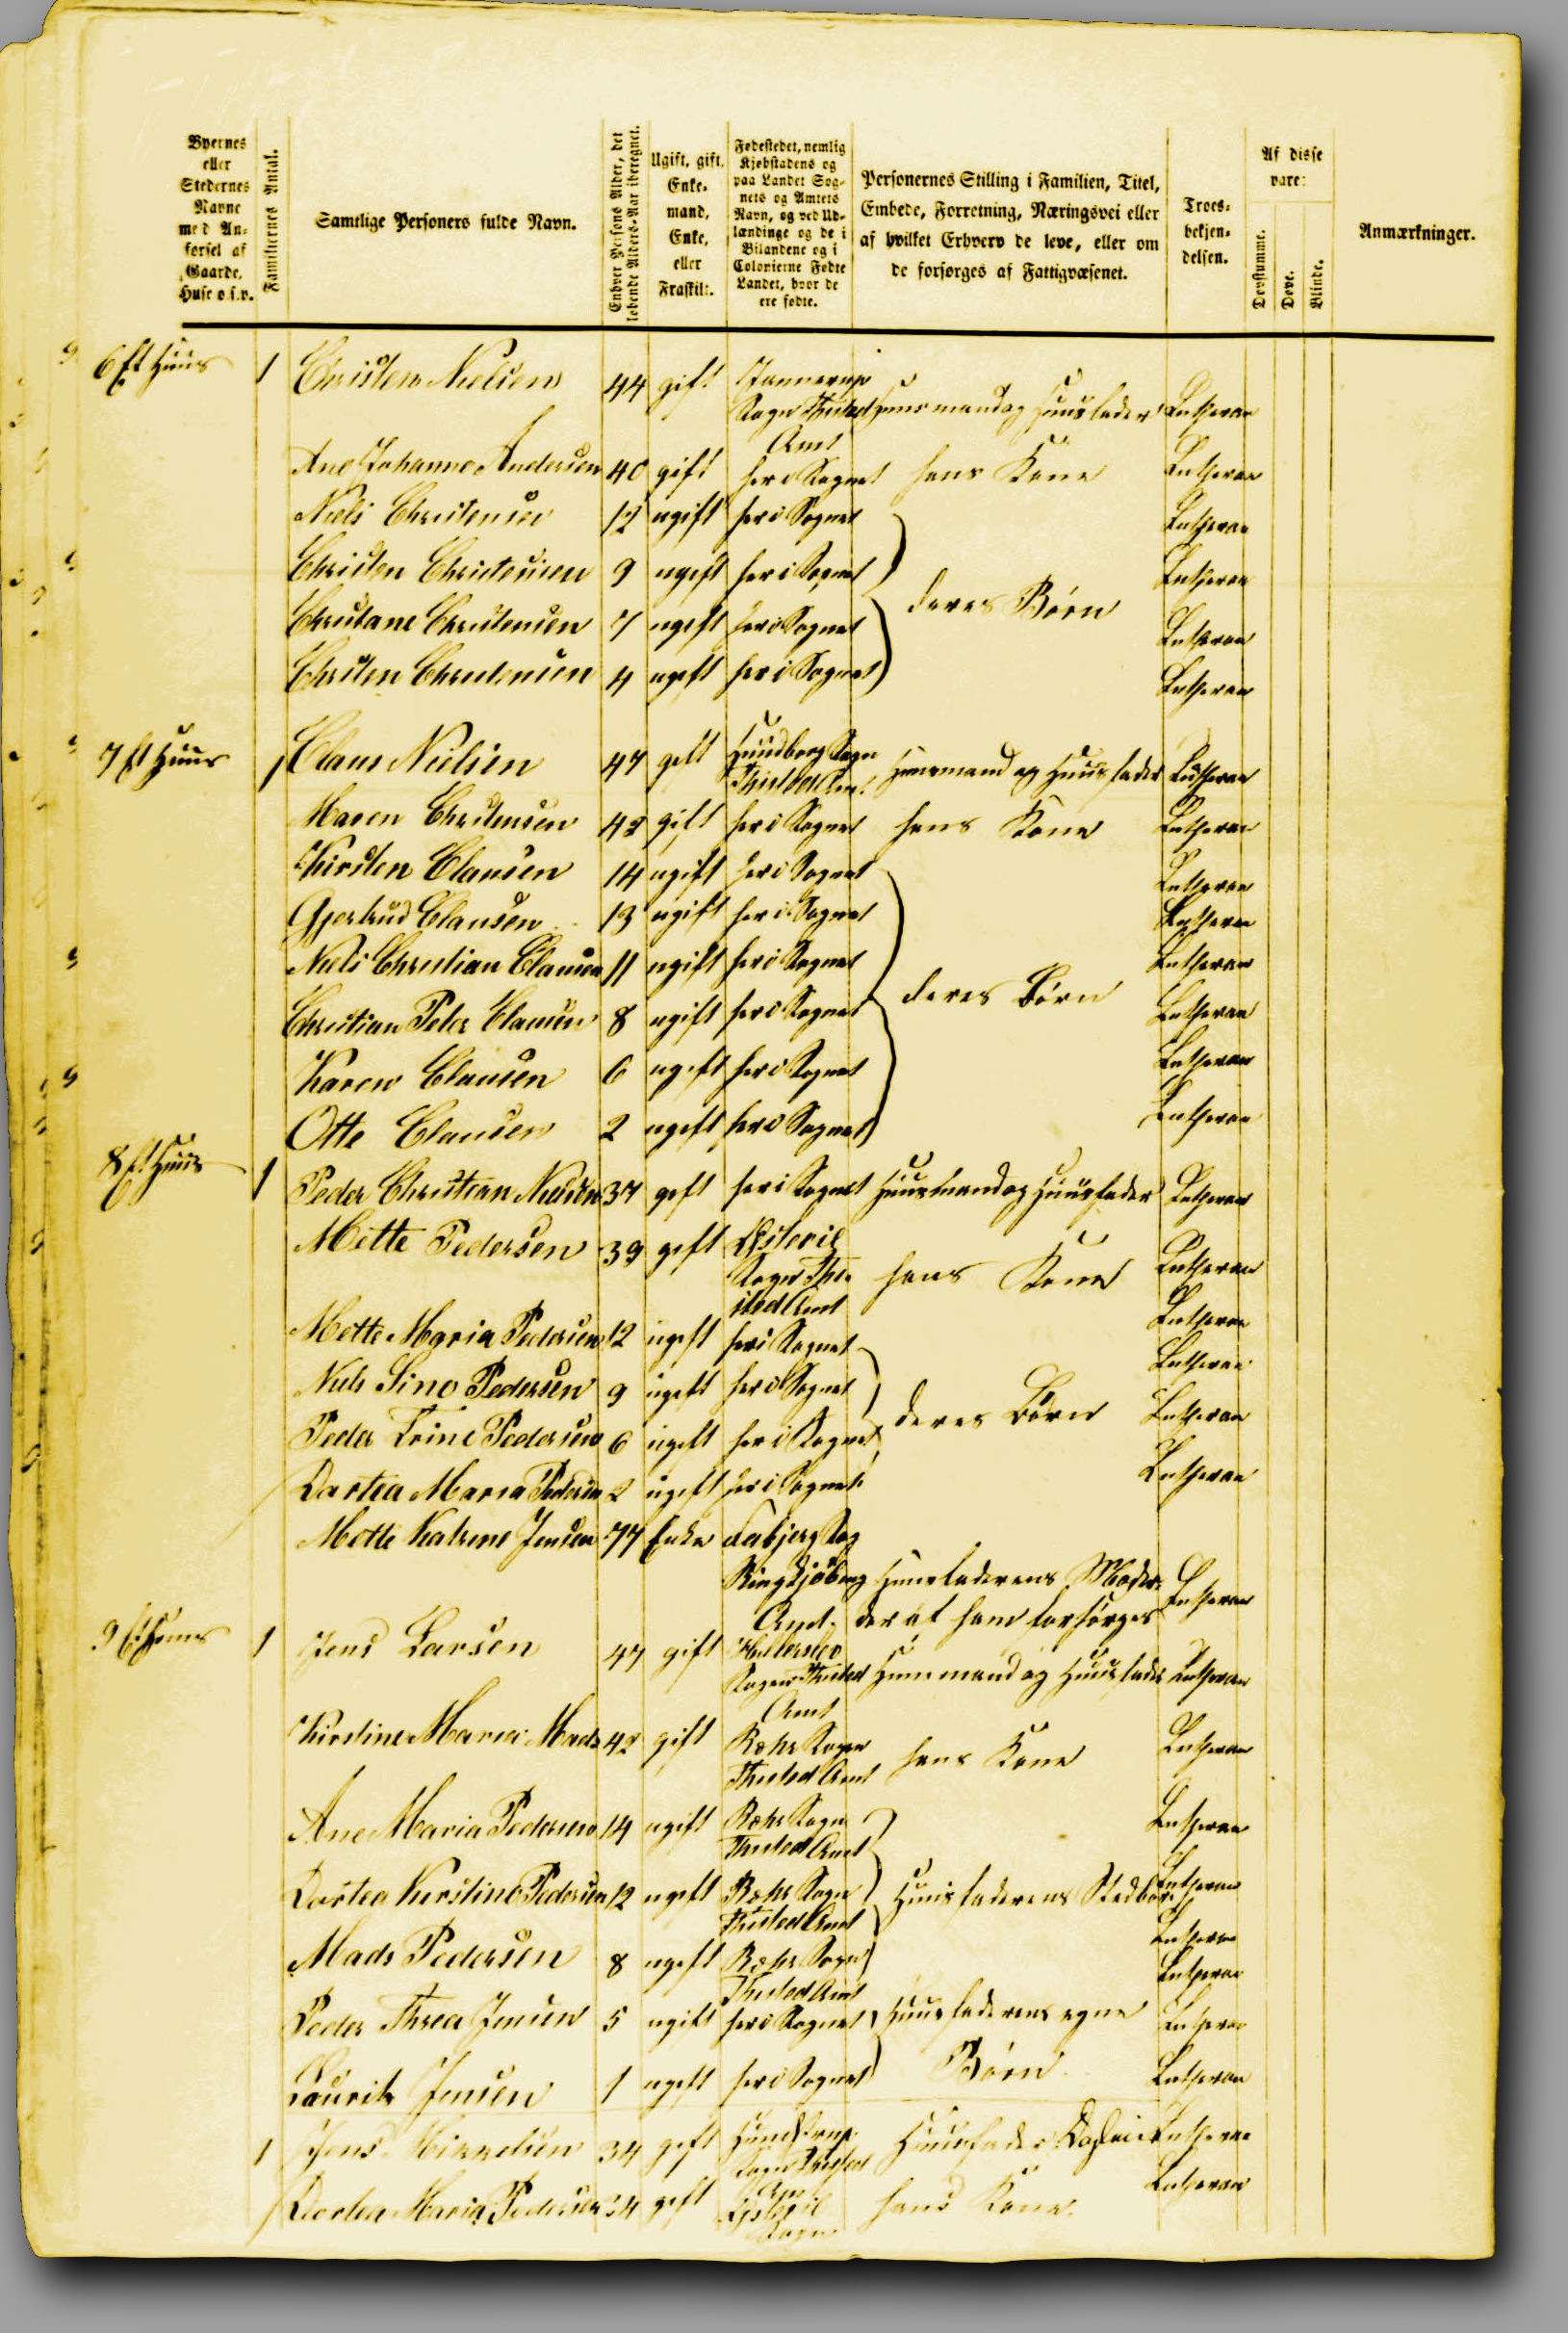 Byernes eller Stedernes Navne med Anførsel af Gaarde, Huse o.s.v.
Familiernes Antal.
Samtlige Personers fulde Navn.
Enhver Persons Alder, det løbende Alders-Aar iberegnet.
Ugift, gift, Enkemand, Enke, eller Fraskilt.
Fødestedet, nemlig Kjøbstadens og paa Landet Sognets og Amtets Navn, og ved Udlændinge og de i Bilandene og i Colonierne Fødte Landet, hvor de ere fødte.
Personernes Stilling i Familien, Titel, Embede, Forretning, Næringsvei eller af hvilket Erhverv de leve, eller om de forsørges af Fattigvæsenet.
Troesbekjendelsen.
Af disse vare:
Døvstumme.
Døve.
Blinde.
Anmærkninger.
6 Et Huus 1 Christen Nielsen 44 gift Sogn Thisted Amt Huusmand og Huusfader Lutheran
Ane Johanne Andersen 40 gift her i Sognet hans Kone Lutheran
Niels Christensen 12 ugift her i Sognet Lutheran
Christen Christensen 9 ugift her i Sognet Lutheran
deres Børn
Christane Christensen 7 ugift her i Sognet Lutheran
Christen Christensen 4 ugift her i Sognet Lutheran
7 Et Huus 1 Claus Nielsen 47 gift Hundborg Sogn Thisted Amt Huusmand og Huusfader Lutheran
Maren Christensen 43 gift her i Sognet hans Kone Lutheran
Kirsten Clausen 14 ugift her i Sognet Lutheran
Gjertrud Clausen 13 ugift her i Sognet Lutheran
Niels Christian Clausen 11 ugift her i Sognet Lutheran
deres Børn
Christian Peder Clausen 8 ugift her i Sognet Lutheran
Karen Clausen 6 ugift her i Sognet Lutheran
Otte Clausen 2 ugift her i Sognet Lutheran
8 Et Huus 1 Peder Christian Nielsen 37 gift her i Sognet Huusmand og Huusfader Lutheran
Mette Pedersen 39 gift Østerild Sogn Thisted Amt hans Kone Lutheran
Mette Maria Pedersen 12 ugift her i Sognet Lutheran
Niels Sino Pedersen 9 ugift her i Sognet Lutheran
deres Børn
Peder Trine Pedersen 6 ugift her i Sognet Lutheran
Dartea Maria Pedersen 2 ugift her i Sognet Lutheran
Mette Katrine Jensen 77 Enke Fabjerg Sog Ringkjøbing Amt Huusfaderens Moder, der af ham forsørges Lutheran
9 Et Huus 1 Jens Larsen 47 gift Sogn Thisted Amt Huusmand og Huusfader Lutheran
Kirstine Maria Mads 42 gift Ræhr Sogn Thisted Amt hans Kone Lutheran
Ane Maria Pedersen 14 ugift Ræhr Sogn Thisted Amt Lutheran
Dartea Kirstine Pedersen 12 ugift Ræhr Sogn Thisted Amt Huusfaderens Stedbørn Lutheran
Mads Pedersen 8 ugift Ræhr Sogn Thisted Amt Lutheran
Lutheran
Peder Jensen 5 ugift her i Sognet Huusfaderens egne Børn Lutheran
Laurits Jensen 1 ugift her i Sognet Lutheran
1 Jens Mikkelsen 34 gift Hunstrup Sogn Thisted Am Huusfader Lutheran
Dortea Maria Pedersen 34 gift Sogn hans Kone Lutheran